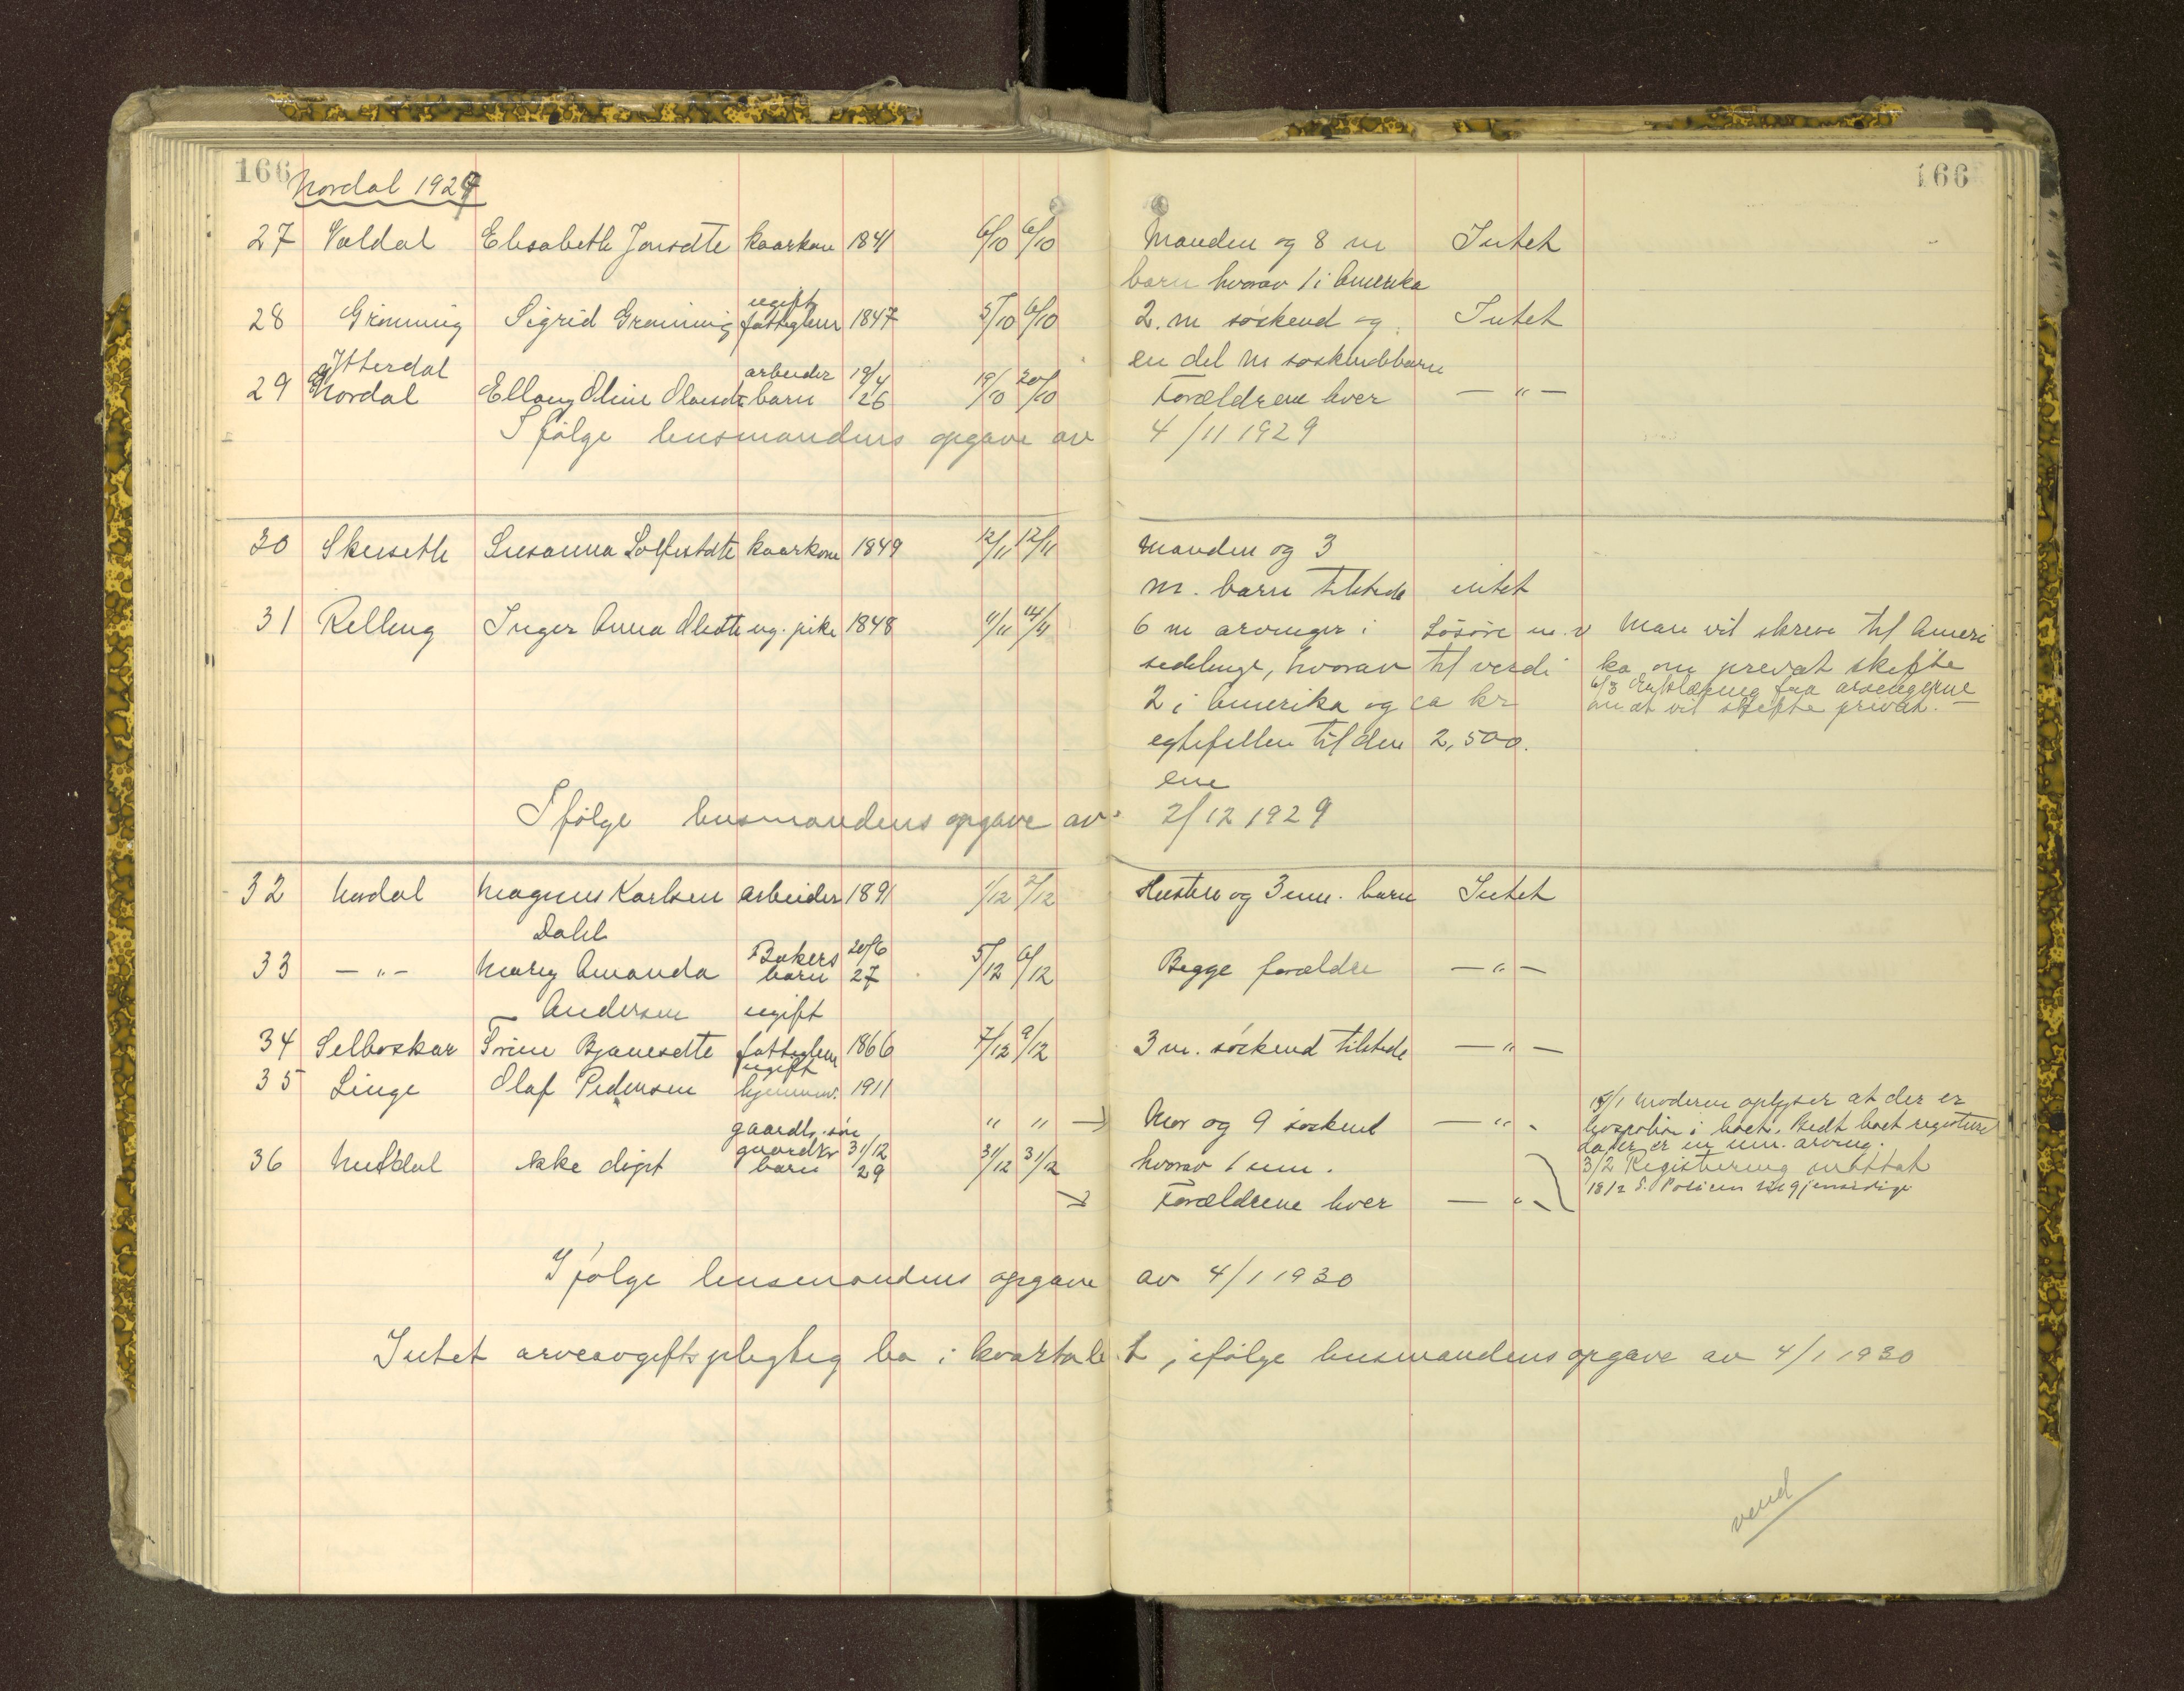 166 Nordal 1929 166
27 Valdal Elisabeth Jonsdtr kaarkone 1841 6/10 6/10 Manden og 8 m Intet
barn hvorav 1 i Amerika
ugift
28 Grønning Sigrid Grønning fattiglem 1847 5/10 6/10 2. m søskend og Intet
en del m søskendebarn
Ytterdal arbeider 19/4
29 Nordal Ellaug Oline Olavsdtr barn 26 19/10 20/10 Forældrene lever — " —
Ifølge lensmandens opgave av 4/11 1929
30 Skuseth Susanna Lolfsdtr kaarkone 1849 12/11 12/11 Manden og 3
m. barn tilstede intet
31 Relling Inger Anna Olsdtr ug. pike 1848 11/11 14/11 6 m arvinger i Løsøre m. v Man vil skrive til Ameri
sedelinge, hvorav til verdi ka om privat skifte
2 i Amerika og ca kr 6/3 fra arvingerne
om at vil skifte privat. —
egtefellen til den 2,500.
ene
Ifølge lensmandens opgave av 2/12 1929
32 Nordal Magnus Karlsen arbeider 1891 1/12 2/12 Hustru og 3 um. barn Intet
Dahl
33 — " — Mary Amanda Bakers barn 20/6 27 5/12 6/12 Begge forældre — " —
Andersen ugift
34 Selboskar Trine Bjanesdtr fattiglem 1866 7/12 9/12 3 m. søskend tilstede — " —
ugift
35 Linge Olaf Pedersen hjemmev. 1911
gaardbr. søn " " Mor og 9 søskend — " - 15/1 Moderen oplyser at der er
livspolise i boet. Bedt boet registrert
da der er en um. arving.
36 Muldal Ikke døpt gaardbr barn 31/12 29 31/12 31/12 hvorav 1 um. 3/2 Registrering mottat
18/2 S. Policen
Forældrene lever — "
Ifølge lensmandens opgave av 4/1 1930
Intet arveavgiftspligtig bo i kvartalet, ifølge lensmandens opgave av 4/1 1930
vend